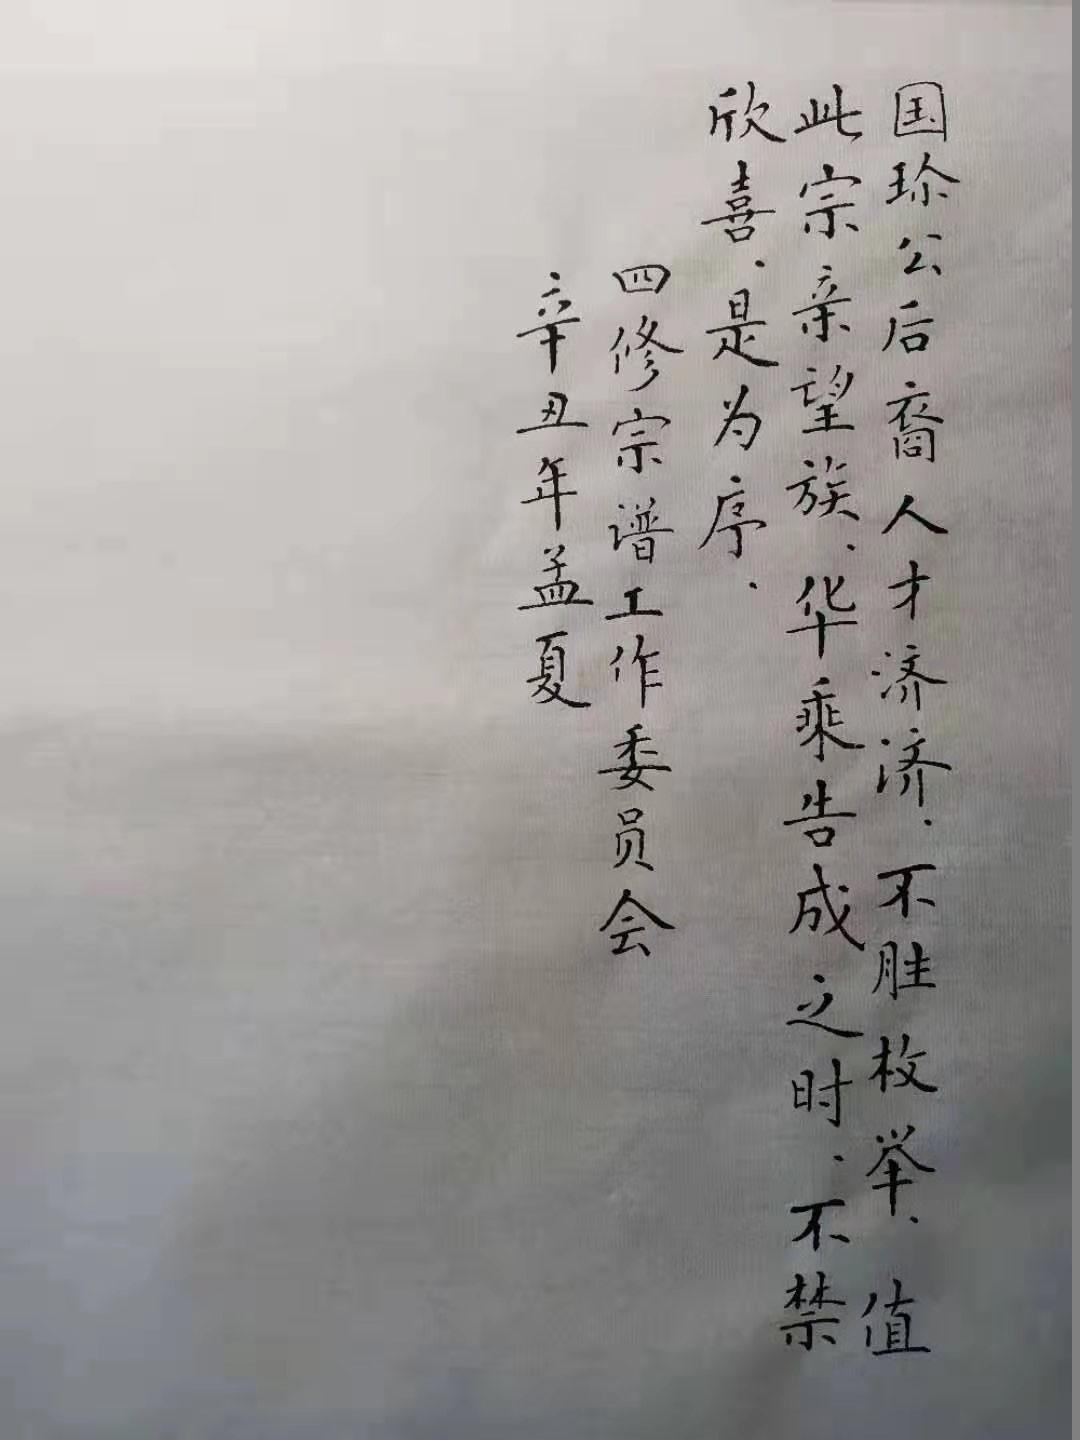 国珍公后裔人才济济.不胜枚举.值
此宗亲望族.华乘告成之时.不禁
欣喜.是为序.
四修宗谱工作委员会
辛丑年孟夏